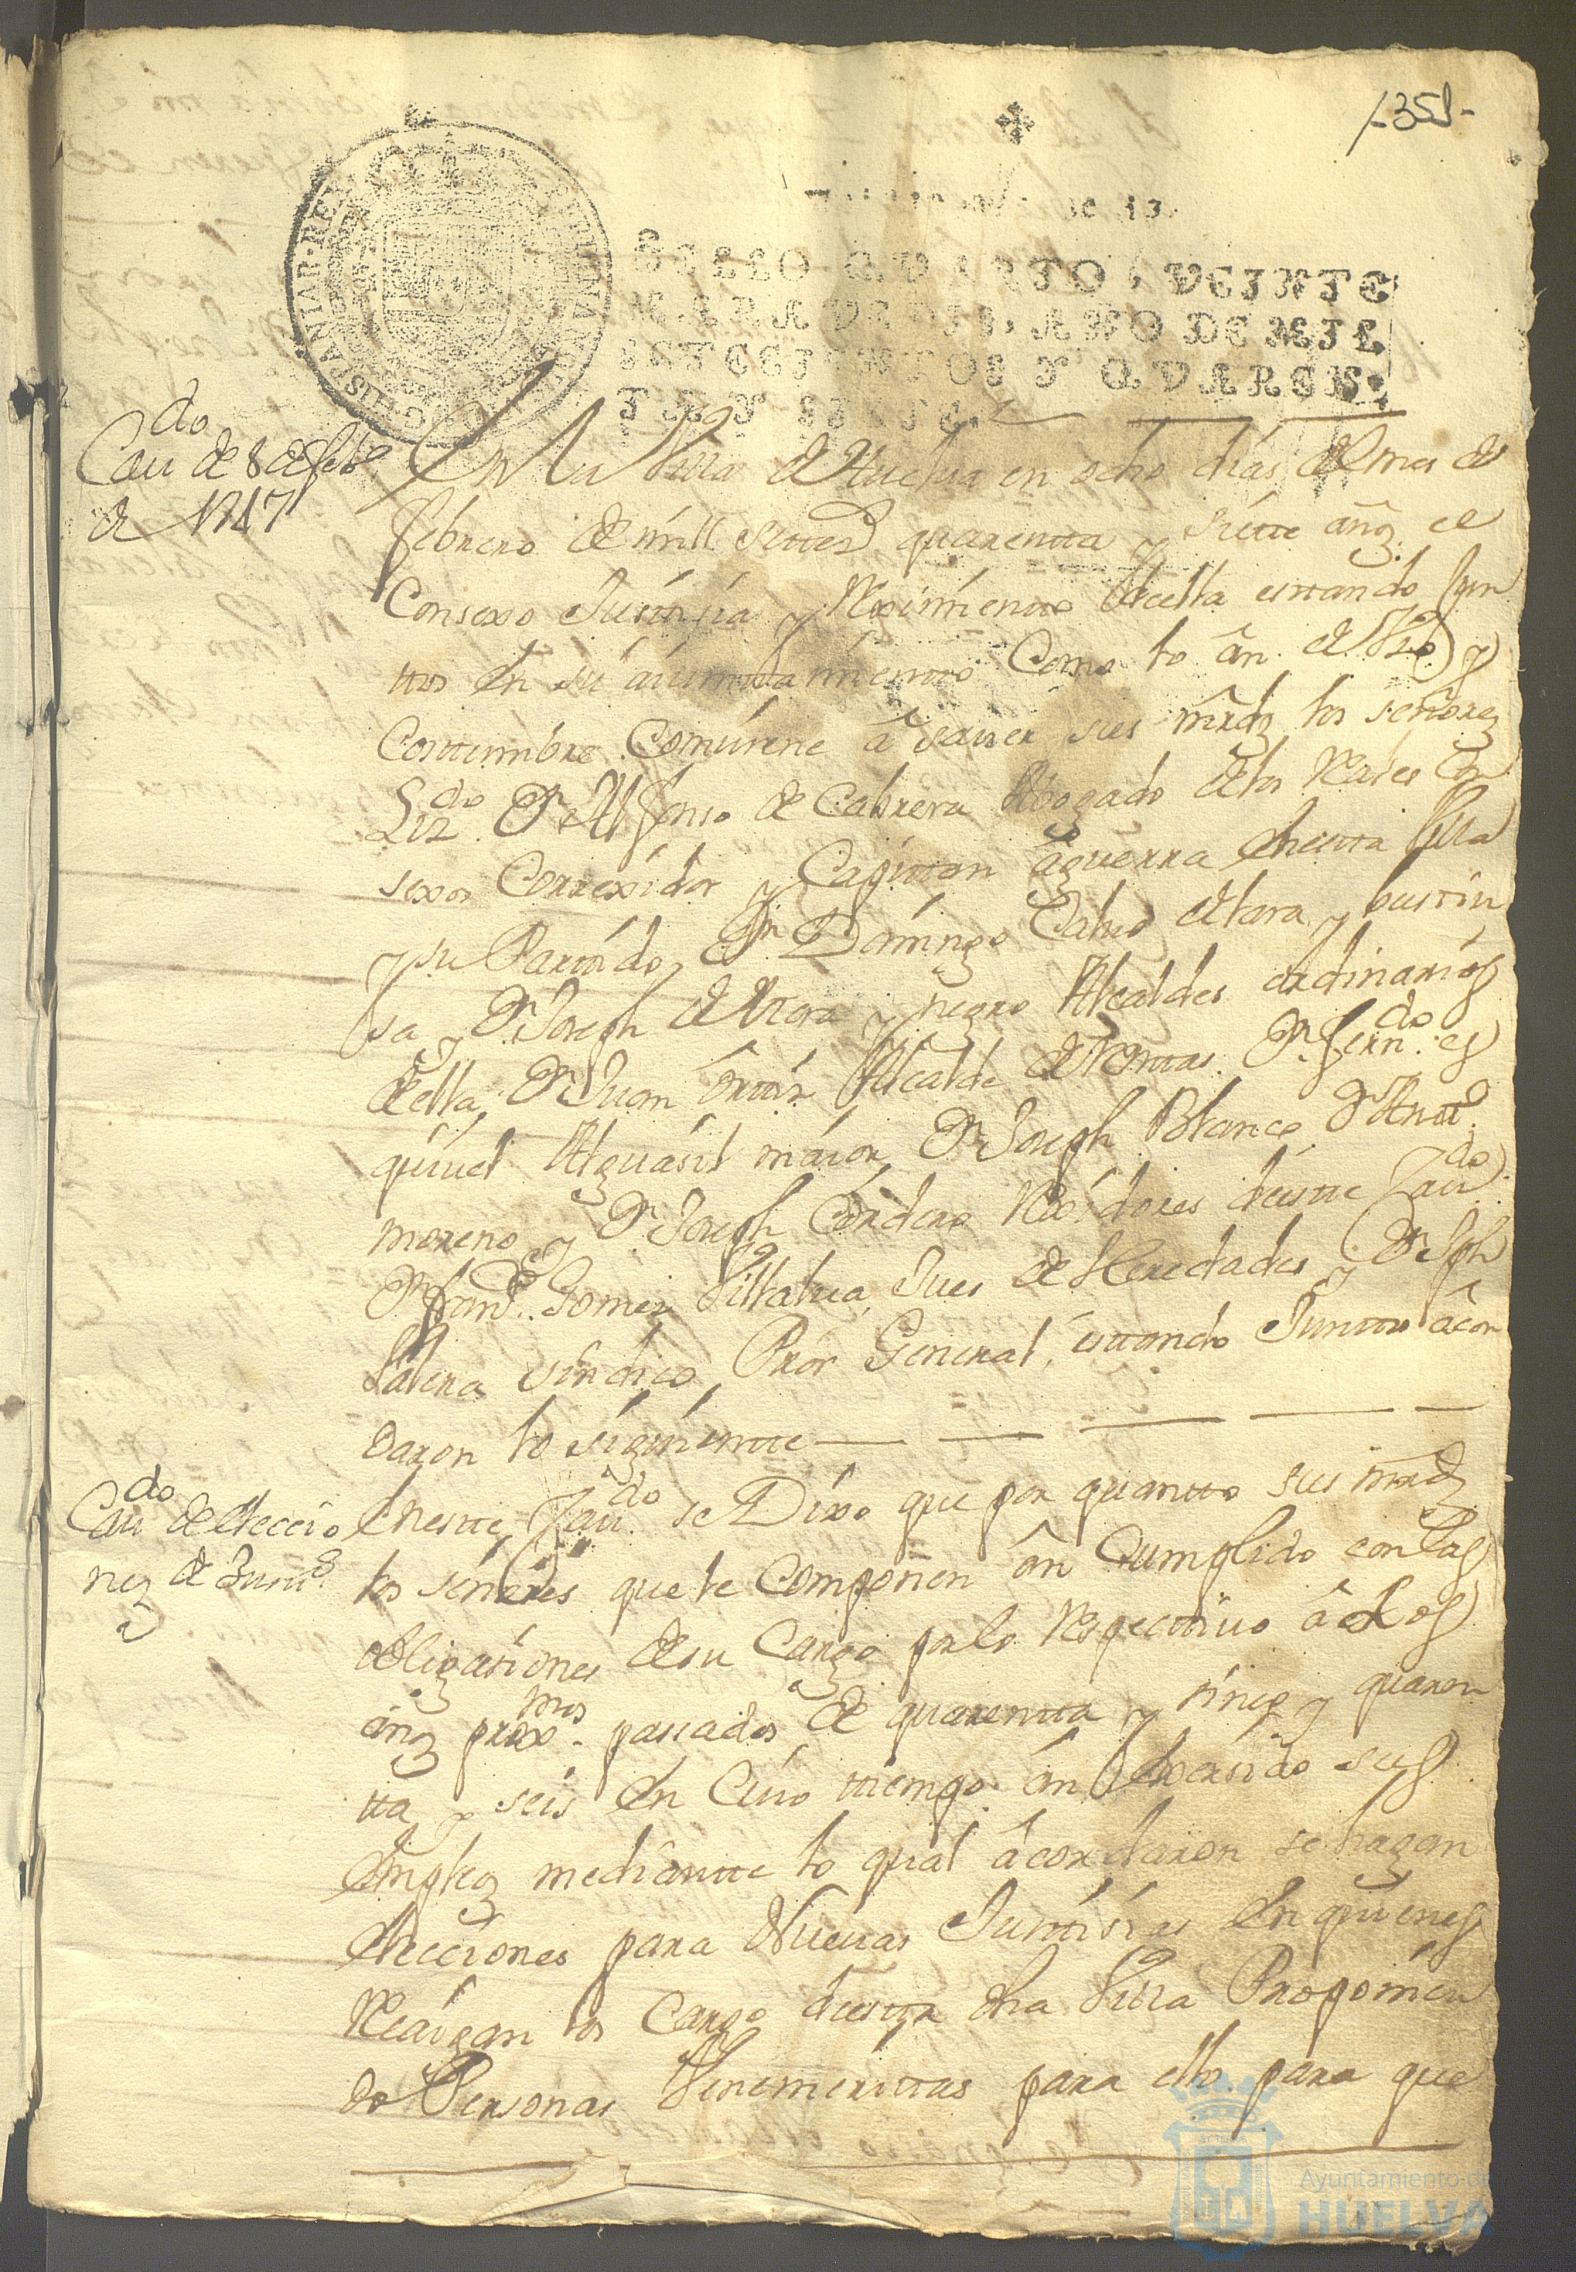 -351-
SELLO QVARTO, VEINTE
MARAVEDIS, AÑO DE MIL
SETECIENTOS Y QVAREN-
TA Y SIETE.
HISPANIAR. REX
Cau.do de 8 de Feb.o
de 1747
En la Villa de Huelva en ocho días del mes de
febrero de mill settez.s quarentta y siette añoz el
Consexo Justisia y Reximientto della estando Jun
ttos en su aiunttamientto Como lo an de Vso y
Costtumbre Combiene â sauer sus mrdz los señorez
Liz.do Dn Alfonso de Cabrera Abogado de los Rales Con
sexos Correxidor y Capittan âguerra destta Villa
y su Parttido, Dn Domingo Calvo de Lara y bustin
sa, y Dn Joseph de Mora y negro Alcaldes ordinarios
della, Dn Juan Orttiz Alcalde de Rentas Dn Fern.do es
quiuel Alguasil maior, Dn Joseph Blanco Dn Antt.o
moreno, y Dn Joseph Cordero Rexidores desutte Cau.do
Dn fran.co Gomez Villalua, Jues de Heredades, y Dn Jph
Valera sindico Pror General, esttando Junttos âcor
daron lo siguientte
Cau.do de Eleccio
nez de Justi.s
En estte Cau.do se Dixo que por quantto sus mrdz
los señores que le Componen ân Cumplido con las
obligasiones de su Cargo por lo Respecttiuo â Los
añoz prox.mos passados de quarentta y sinco y quaren
tta y seis En Cuio ttiempo ân Exersido sus
Empleoz mediantte lo qual âcordaron se hagan
Elecciones para Nueuas Justtisias En quienes
Recaigan los Cargos destta dha Villa Proponien
do Personas Venemerittas para ello para que
Ayuntamiento de
HUELVA